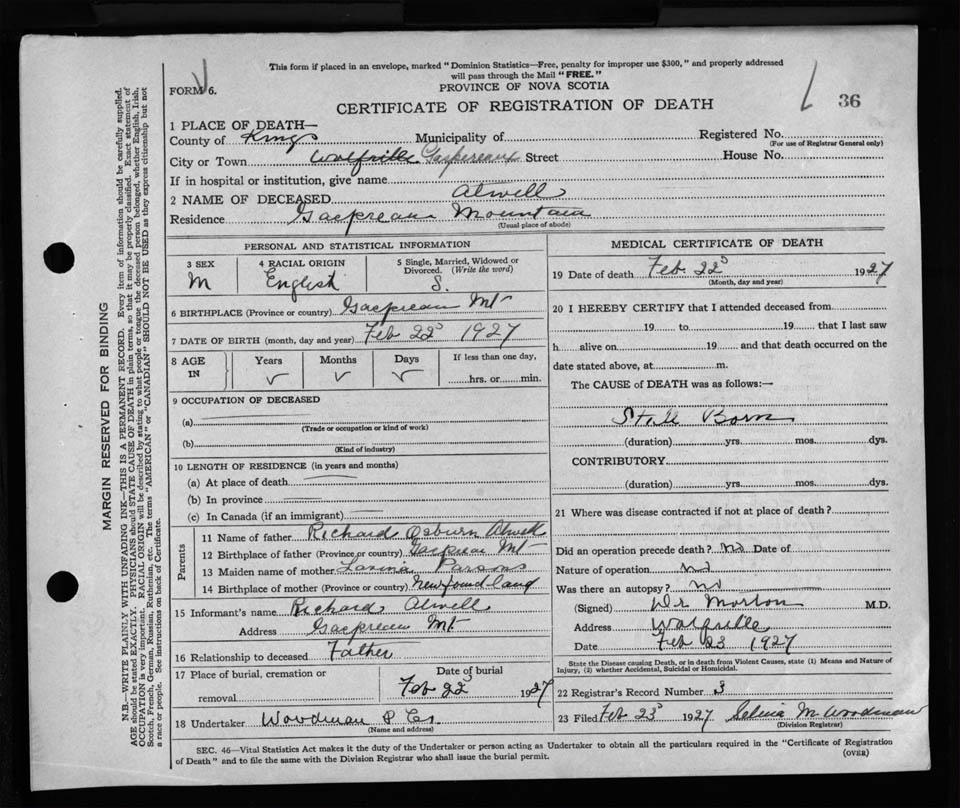 This form if placed in an envelope, marked "Dominion Statistics—Free, penalty for improper use $300," and properly addressed
will pass through the Mail "FREE."
FORM 6.
PROVINCE OF NOVA SCOTIA
CERTIFICATE OF REGISTRATION OF DEATH
36
1 PLACE OF DEATH—
County of Kings Municipality of Registered No.
(For use of Registrar General only)
City or Town Wolfville Gaspereaux Street House No.
If in hospital or institution, give name
2 NAME OF DECEASED Atwell
Residence Gaspreau Mountain
(Usual place of abode)
PERSONAL AND STATISTICAL INFORMATION
3 SEX 4 RACIAL ORIGIN 5 Single, Married, Widowed or
Divorced. (Write the word)
M English S.
6 BIRTHPLACE (Province or country) Gaspreau Mt
7 DATE OF BIRTH (month, day and year) Feb 22 1927
8 AGE IN Years Months Days If less than one day,
hrs. or min.
9 OCCUPATION OF DECEASED
(a)
(Trade or occupation or kind of work)
(b)
(Kind of industry)
10 LENGTH OF RESIDENCE (in years and months)
(a) At place of death
(b) In province
(c) In Canada (if an immigrant)
Parents
11 Name of father Richard Osburn Atwell
12 Birthplace of father (Province or country) Gaspreau Mt
13 Maiden name of mother Parsons
14 Birthplace of mother (Province or country) Newfoundland
15 Informant's name Richard Atwell
Address Gaspreau Mt
16 Relationship to deceased Father
17 Place of burial, cremation or Date of burial
removal Feb 22 1927
18 Undertaker Woodman & Co.
(Name and address)
MEDICAL CERTIFICATE OF DEATH
19 Date of death Feb 22 1927
(Month, day and year)
20 I HEREBY CERTIFY that I attended deceased from
19 to 19 that I last saw
h alive on 19 and that death occurred on the
date stated above, at m.
The CAUSE of DEATH was as follows:—
Still Born
(duration) yrs. mos. dys.
CONTRIBUTORY
(duration) yrs. mos. dys.
21 Where was disease contracted if not at place of death?
Did an operation precede death? no Date of
Nature of operation no
Was there an autopsy? no
(Signed) Dr Morton M.D.
Address Wolfville
Date Feb 23 1927
State the Disease causing Death, or in death from Violent Causes, state (1) Means and Nature of
Injury, (2) whether Accidental, Suicidal or Homicidal.
22 Registrar's Record Number 3
23 Filed Feb 23 1927 Selina M. Woodman
(Division Registrar)
SEC. 46—Vital Statistics Act makes it the duty of the Undertaker or person acting as Undertaker to obtain all the particulars required in the "Certificate of Registration
of Death" and to file the same with the Division Registrar who shall issue the burial permit.
(OVER)
MARGIN RESERVED FOR BINDING
N.B.—WRITE PLAINLY WITH UNFADING INK—THIS IS A PERMANENT RECORD. Every item of information should be carefully supplied.
AGE should be stated EXACTLY. PHYSICIANS should STATE CAUSE OF DEATH in plain terms, so that it may be properly classified. Exact statement of
OCCUPATION is very important. RACIAL ORIGIN will be described by stating to what people or tongue the deceased person belonged, whether English, Irish,
Scotch, French, German, Russian, Ruthenian, etc. The terms "AMERICAN" or "CANADIAN" SHOULD NOT BE USED as they express citizenship but not
a race or people. See instructions on back of Certificate.